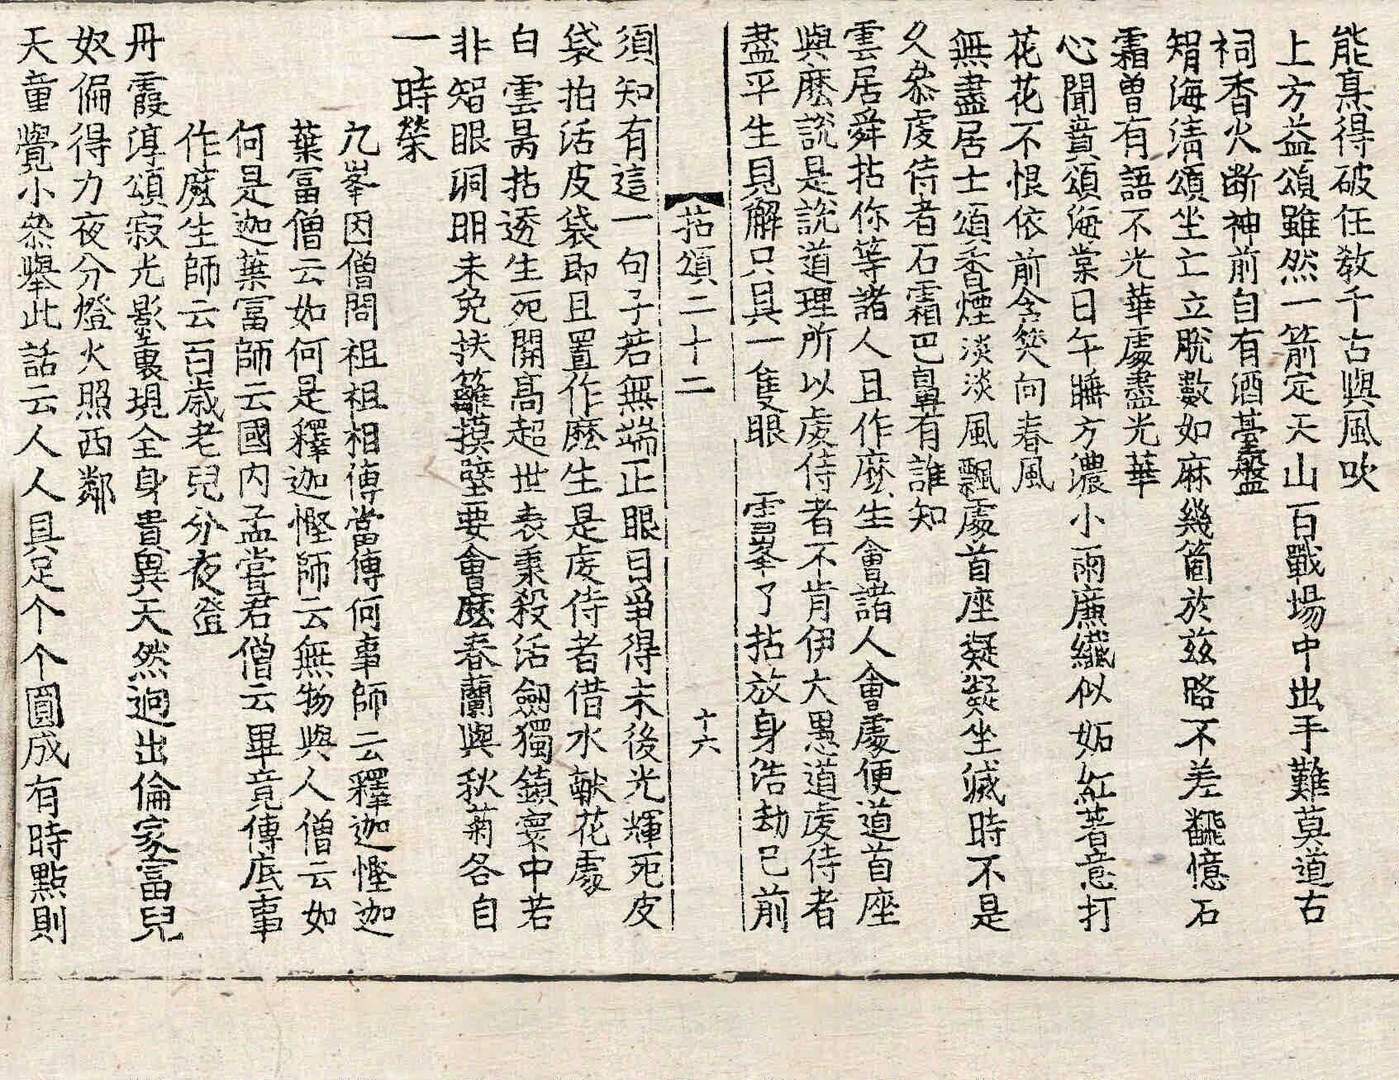 能真得破任教千古與風吹
上方益頌雖然一箭定天山百戰場中出手難莫道古
祠香火斷神前自有酒臺盤
智海清頌坐亡立脫數如麻幾箇於茲路不差翻憶石
霜曾有語不光華處盡光華
心聞賁頌海棠日午睡方濃小雨廉纖似妬紅著意打
花花不恨依前含笑向春風
無盡居士頌香煙淡淡風飄處首座凝凝坐滅時不是
久叅虔侍者石霜巴鼻有誰知
雲居舜拈你等諸人且作麽生會諸人會處便道首座
與麽說是說道理所以虔侍者不肯伊大愚道虔侍者
盡平生見解只具一隻眼 雪峯了拈放身浩劫已前
拈頌二十二 十六
須知有這一句子若無端正眼目爭得末後光輝死皮
袋拍活皮袋即且置作麽生是虔侍者借水献花處
白雲昺拈透生死開高超世表秉殺活劒獨鎮寰中若
非智眼洞明未免扶籬摸壁要會麽春蘭與秋菊各自
一時榮
九峯因僧問祖祖相傳當傳何事師云釋迦慳迦
葉富僧云如何是釋迦慳師云無物與人僧云如
何是迦葉富師云國內孟嘗君僧云畢竟傳底事
作麽生師云百歲老兒分夜燈
丹霞淳頌寂光影裏現全身貴異天然迥出倫家富兒
奴偏得力夜分燈火照西鄰
天童覺小叅擧此話云人人具足个个圓成有時點則